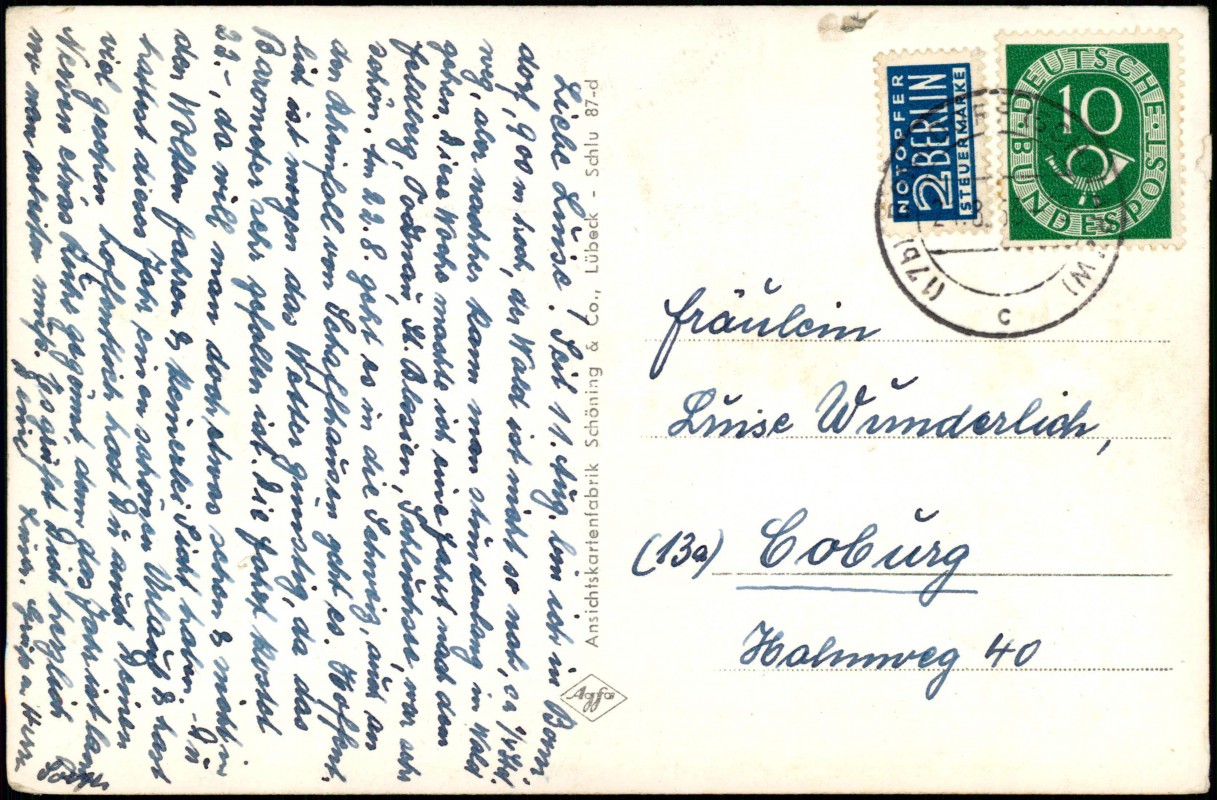 Liebe Luise! Seit 11. Aug. bin ich in Bonn-
dorf, 900 m hoch, der Wald ist nicht so nah, ca 1/4 Std.
weg, aber nachher kann man stundenlang im Wald
gehen. Diese Woche machte ich eine Fahrt nach dem
Feldberg, Todtnau, St. Blasien, Schluchsee, war sehr
schön. Am 22.8. geht es in die Schweiz, auch an
den Rheinfall von Schaffhausen geht es. Hoffent-
lich ist morgen das Wetter günstig, da das
Barometer sehr gefallen ist. Die Fahrt kostet
22.-, da will man doch etwas sehen & nicht in
den Wolken fahren & keinerlei Sicht haben. - Du
hattest dieses Jahr einen schönen Urlaub & hast
viel gesehen. Hoffentlich hast Du auch Deinen
Nerven etwas Ruhe gegönnt, denn das Jahr ist lang
wo man arbeiten muß. Es grüßt Dich herzlich
Deine
Gruß a. Herrn
Ansichtskartenfabrik Schöning & Co., Lübeck - Schlu 87-d
Agfa
NOTOPFER
2 BERLIN
STEUERMARKE
DEUTSCHE
BUNDESPOST
10
(17b)
c
Fräulein
Luise Wunderlich,
(13a) Coburg
Hahnweg 40